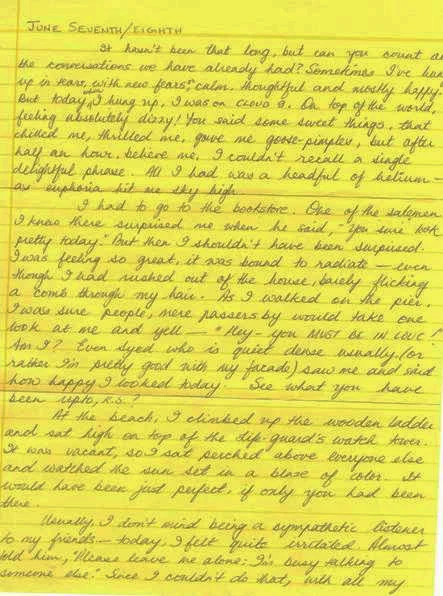 JUNE SEVENTH/EIGHTH
It hasn't been that long, but can you count
the conversations we have already had? Sometimes I've
up in tears, with new fears, calm, thoughtful and mostly happy.
But today, when I hung up, I was on cloud 9. On top of the world,
feeling absolutely dizzy! You said some sweet things, that
chilled me, thrilled me, gave me goose-pimples, but after
half an hour, believe me, I couldn't recall a single
delightful phrase. All I had was a headful of helium -
as euphoria hit me sky high.
I had to go to the bookstore. One of the salesmen
I know there surprised me when he said, "You sure look
pretty today." But then I shouldn't have been surprised.
I was feeling so great, it was bound to radiate - even
though I had rushed out of the house, barely flicking
a comb through my hair. As I walked on the pier,
I was sure people, mere passersby would take one
look at me and yell - "Hey - you MUST BE IN LOVE!
Am I? Even Syed who is quiet dense usually, (or
rather I'm pretty good with my facade) saw me and said
how happy I looked today. See what you have
been upto, K.S.?
At the beach, I climbed up the wooden ladder
and sat high on top of the life-guard's watch tower.
It was vacant, so I sat perched above everyone else
and watched the sun set in a blaze of color. It
would have been just perfect, if only you had been
there.
Usually, I don't mind being a sympathetic listener
to my friends - today, I felt quite irritated. Almost
told him, "Please leave me alone; I'm busy talking to
someone else." Since I couldn't do that, with all my